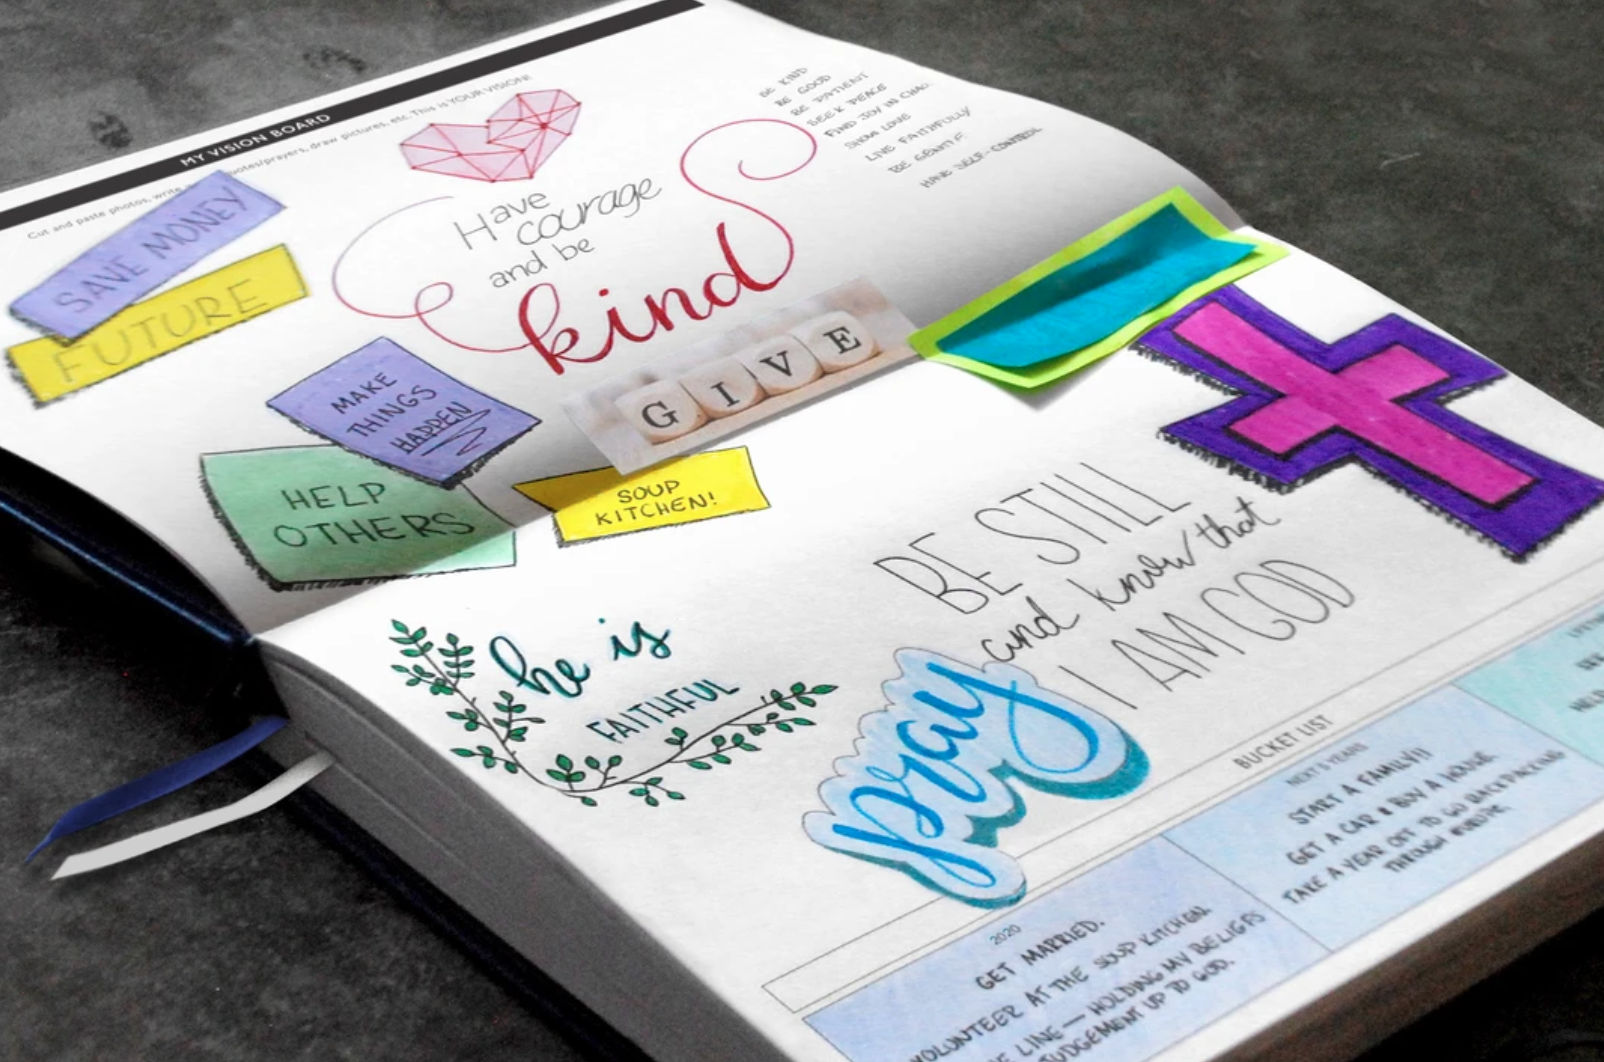 MY VISION BOARD
Cut and paste photos, write quotes/prayers, draw pictures, etc. This is YOUR VISION!
BE KIND
BE GOOD
BE PATIENT
SEEK PEACE
FIND JOY IN CHAO
SHOW LOVE
LIVE FAITHFULLY
BE GENTLE
HAVE SELF-CONTROL
Have
courage
and be
kind
SAVE MONEY
FUTURE
MAKE
THINGS
HAPPEN
GIVE
HELP
OTHERS
SOUP
KITCHEN!
BE STILL
and know that
I AM GOD
he is
FAITHFUL
pray
BUCKET LIST
2020
GET MARRIED.
VOLUNTEER AT THE SOUP KITCHEN
LINE — HOLDING MY BELIEFS
JUDGEMENT UP TO GOD.
NEXT 5 YEARS
START A FAMILY!!
GET A CAR & BUY A HOUSE
TAKE A YEAR OFF TO GO BACKPACKING
THROUGH